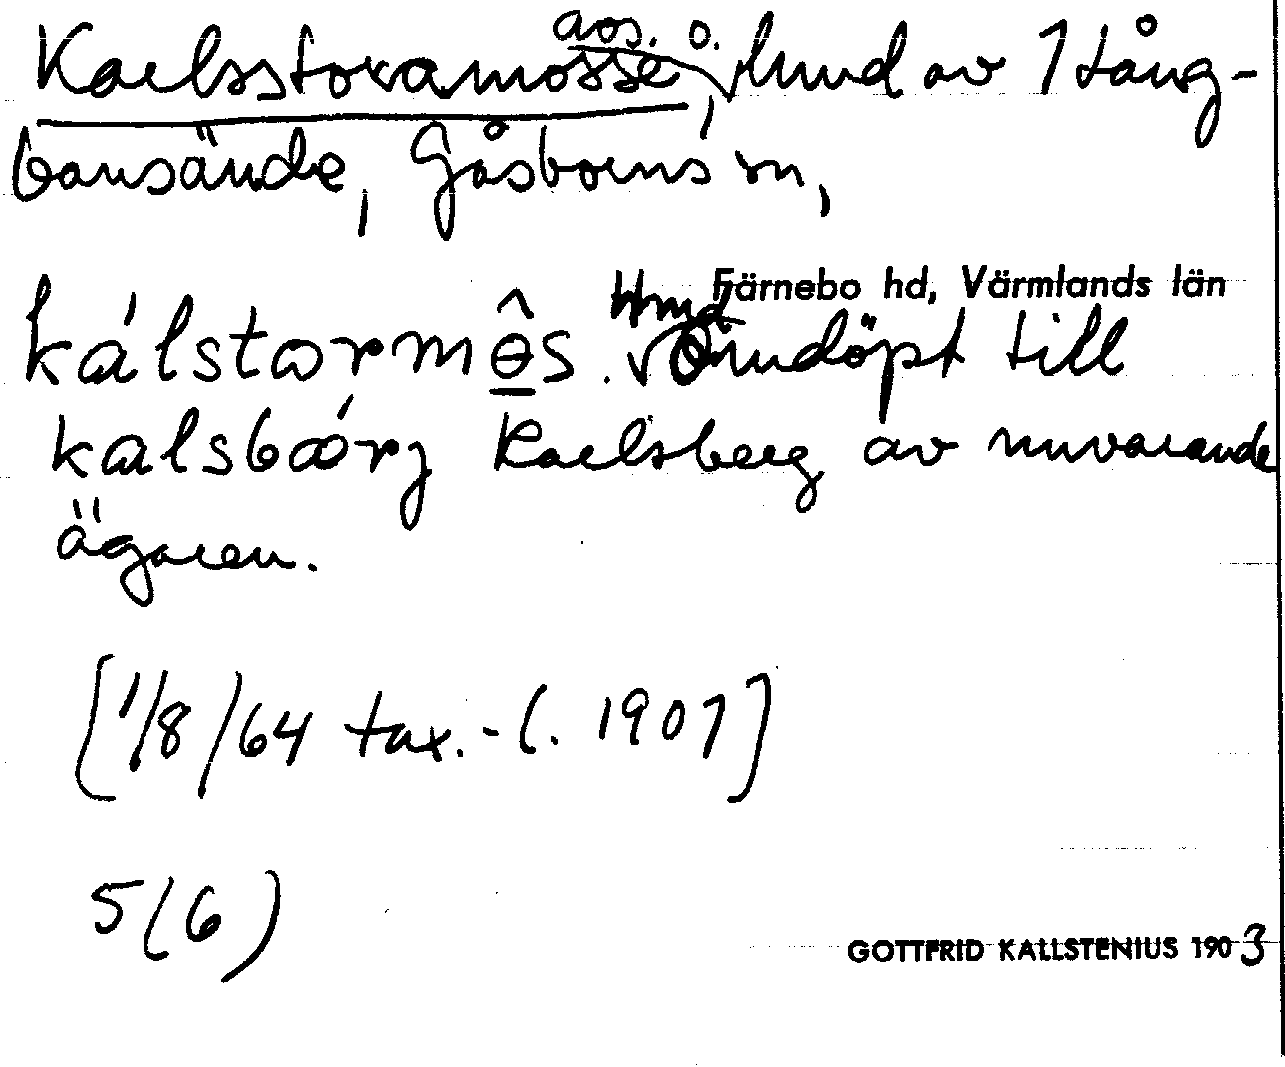 avs. o.
Karlsstoramosse, hmd av 1 tång-
bansände, Gåsborns sn,
Färnebo hd, Värmlands län
kálstormôs. Hmd Omdöpt till
kalsbǽrj Karlsberg av nuvarande
ägaren.
[1/8/64 tax.-l. 1907]
5(6)
GOTTFRID KALLSTENIUS 1903